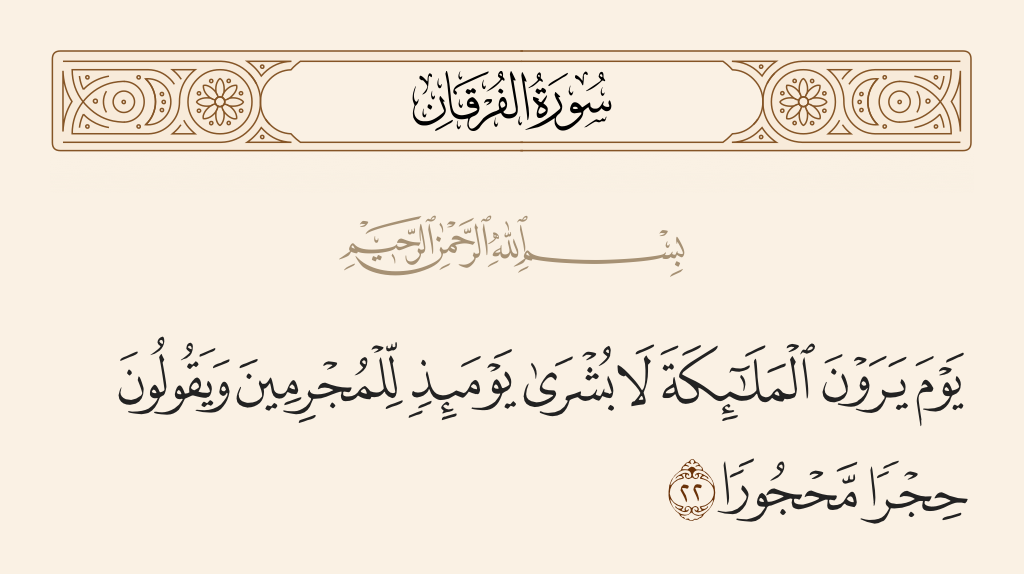 سُورَةُ الفُرْقَانِ
بِسْمِ ٱللَّهِ ٱلرَّحْمَٰنِ ٱلرَّحِيمِ
يَوْمَ يَرَوْنَ ٱلْمَلَـٰٓئِكَةَ لَا بُشْرَىٰ يَوْمَئِذٍ لِّلْمُجْرِمِينَ وَيَقُولُونَ
حِجْرًا مَّحْجُورًا ٢٢